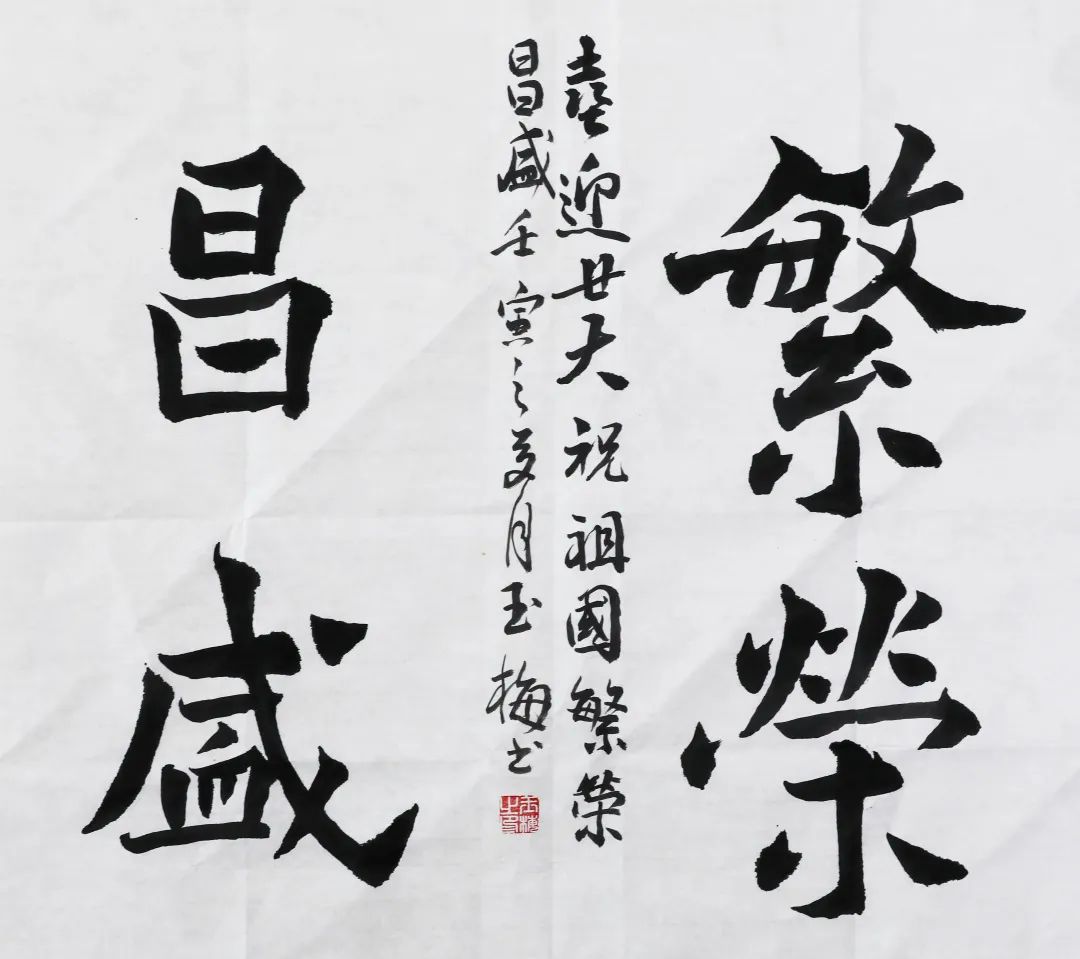 繁榮
喜迎廿大祝祖國繁榮
昌盛壬寅之夏月玉梅书
玉梅之印
昌盛